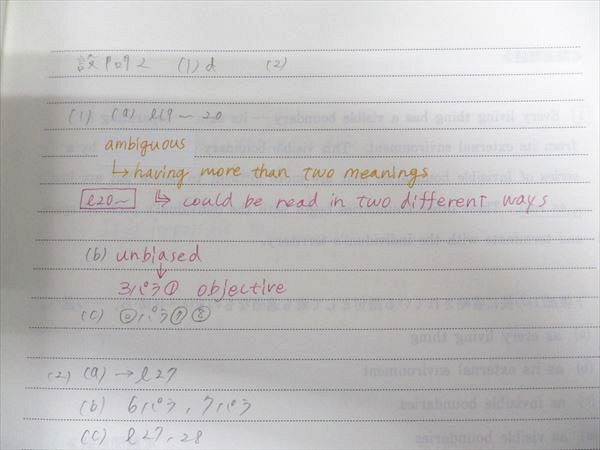 設問2 (1) d (2)
(1) (a) l19〜20
ambiguous
↳ having more than two meanings
l20〜 ↳ could be read in two different ways
(b) unbiased
↓
3パラ① objective
(c) ⑥パラ⑦⑧
(2) (a) → l27
(b) 6パラ, 7パラ
(c) l27, 28
1 Every living thing has a visible boundary — its
from its external environment. This visible boundary
series of invisible
with the individual's territory
(a) as every living thing
as its external environment
as invisible boundaries
as visible boundaries